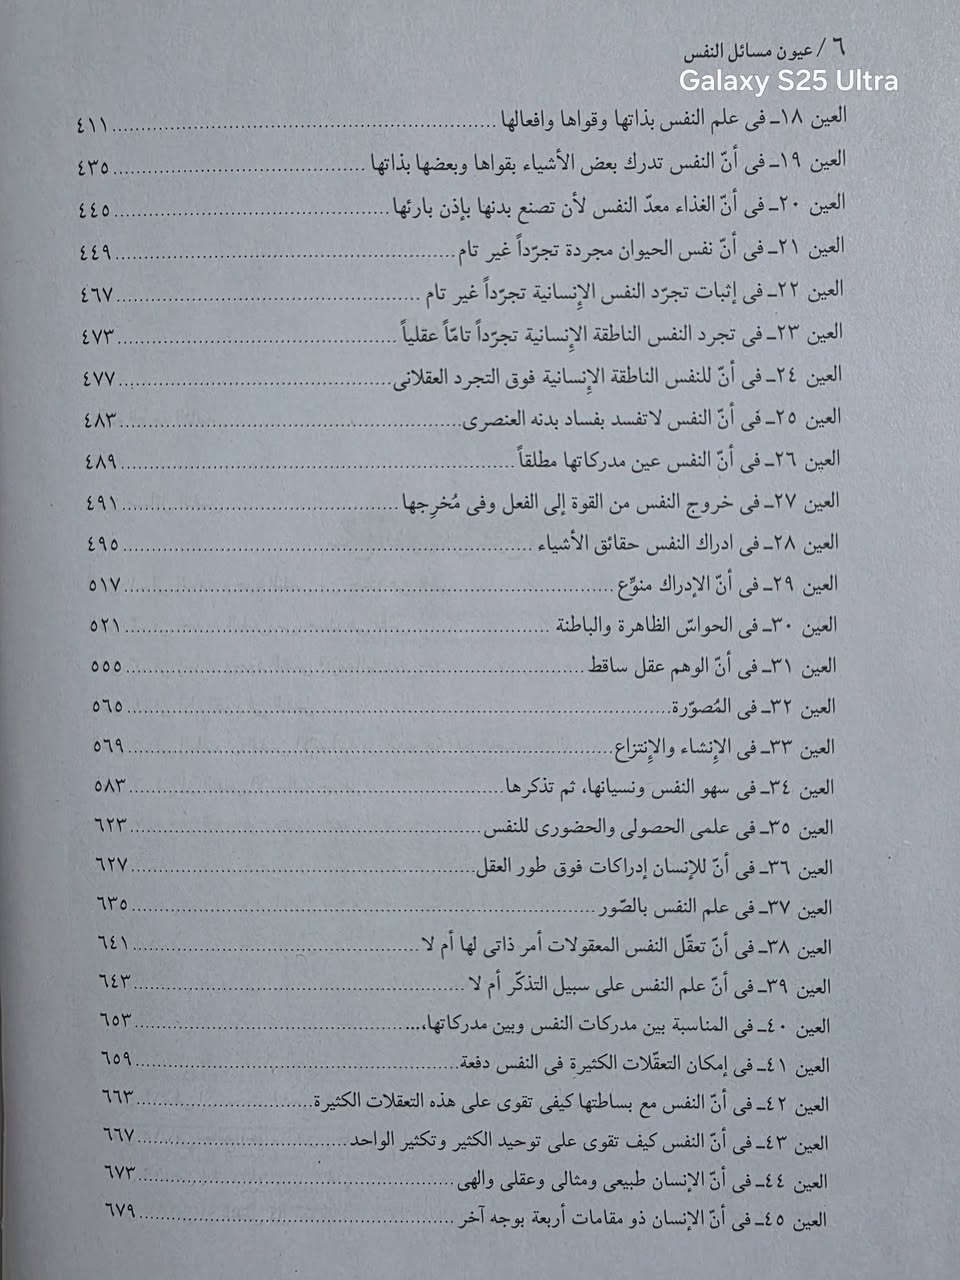 ٦ / عيون مسائل النفس
Galaxy S25 Ultra
العين ١٨ـ فى علم النفس بذاتها وقواها وافعالها ............ ٤١١
العين ١٩ـ فى أنّ النفس تدرك بعض الأشياء بقواها وبعضها بذاتها ............ ٤٣٥
العين ٢٠ـ فى أنّ الغذاء معدّ النفس لأن تصنع بدنها بإذن بارئها ............ ٤٤٥
العين ٢١ـ فى أنّ نفس الحيوان مجردة تجرّداً غير تام ............ ٤٤٩
العين ٢٢ـ فى إثبات تجرّد النفس الإِنسانية تجرّداً غير تام ............ ٤٦٧
العين ٢٣ـ فى تجرد النفس الناطقة الإِنسانية تجرّداً تامّاً عقلياً ............ ٤٧٣
العين ٢٤ـ فى أنّ للنفس الناطقة الإِنسانية فوق التجرد العقلانى ............ ٤٧٧
العين ٢٥ـ فى أنّ النفس لاتفسد بفساد بدنه العنصرى ............ ٤٨٣
العين ٢٦ـ فى أنّ النفس عين مدركاتها مطلقاً ............ ٤٨٩
العين ٢٧ـ فى خروج النفس من القوة إلى الفعل وفى مُخرِجها ............ ٤٩١
العين ٢٨ـ فى ادراك النفس حقائق الأشياء ............ ٤٩٥
العين ٢٩ـ فى أنّ الإدراك منوِّع ............ ٥١٧
العين ٣٠ـ فى الحواسّ الظاهرة والباطنة ............ ٥٢١
العين ٣١ـ فى أنّ الوهم عقل ساقط ............ ٥٥٥
العين ٣٢ـ فى المُصوّرة ............ ٥٦٥
العين ٣٣ـ فى الإِنشاء والإِنتزاع ............ ٥٦٩
العين ٣٤ـ فى سهو النفس ونسيانها، ثم تذكرها ............ ٥٨٣
العين ٣٥ـ فى علمى الحصولى والحضورى للنفس ............ ٦٢٣
العين ٣٦ـ فى أنّ للإنسان إدراكات فوق طور العقل ............ ٦٢٧
العين ٣٧ـ فى علم النفس بالصّور ............ ٦٣٥
العين ٣٨ـ فى أنّ تعقّل النفس المعقولات أمر ذاتى لها أم لا ............ ٦٤١
العين ٣٩ـ فى أنّ علم النفس على سبيل التذكّر أم لا ............ ٦٤٣
العين ٤٠ـ فى المناسبة بين مدركات النفس وبين مدركاتها،... ............ ٦٥٣
العين ٤١ـ فى إمكان التعقّلات الكثيرة فى النفس دفعة ............ ٦٥٩
العين ٤٢ـ فى أنّ النفس مع بساطتها كيفى تقوى على هذه التعقلات الكثيرة ............ ٦٦٣
العين ٤٣ـ فى أنّ النفس كيف تقوى على توحيد الكثير وتكثير الواحد ............ ٦٦٧
العين ٤٤ـ فى أنّ الإنسان طبيعى ومثالى وعقلى والهى ............ ٦٧٣
العين ٤٥ـ فى أنّ الإنسان ذو مقامات أربعة بوجه آخر ............ ٦٧٩